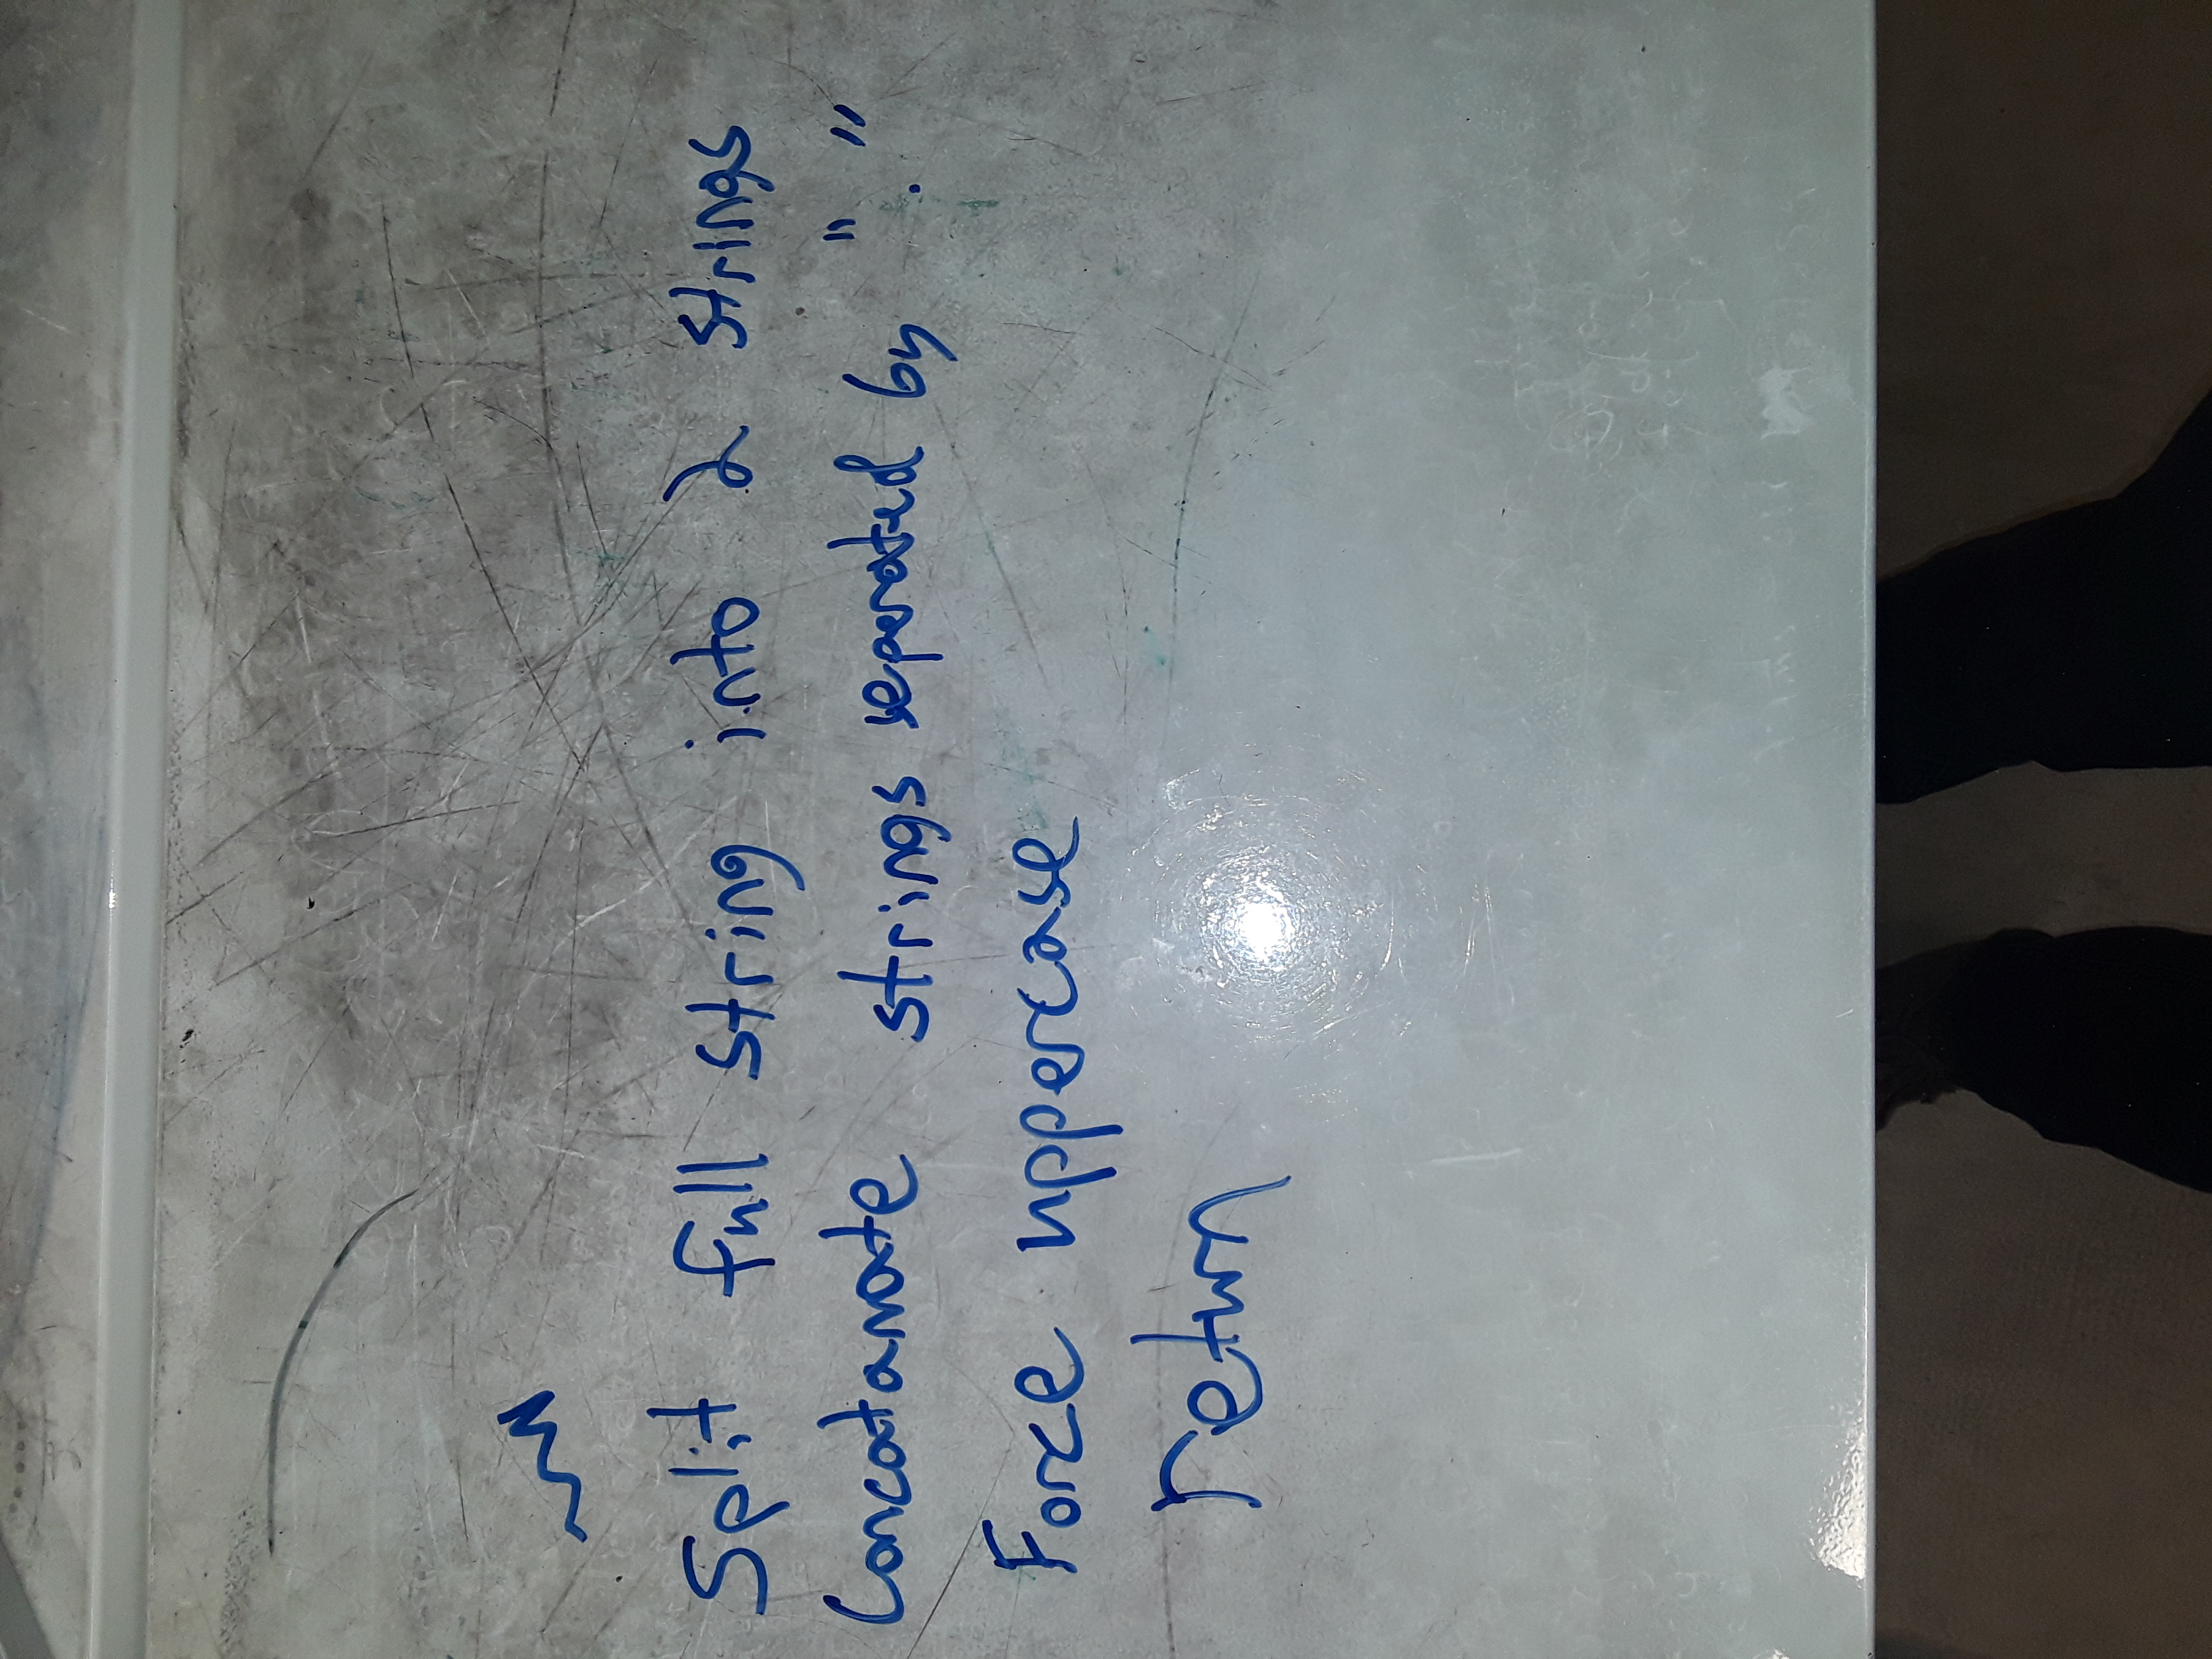 Split full string into 2 strings
Concatanate strings seperated by "."
Force uppercase
return